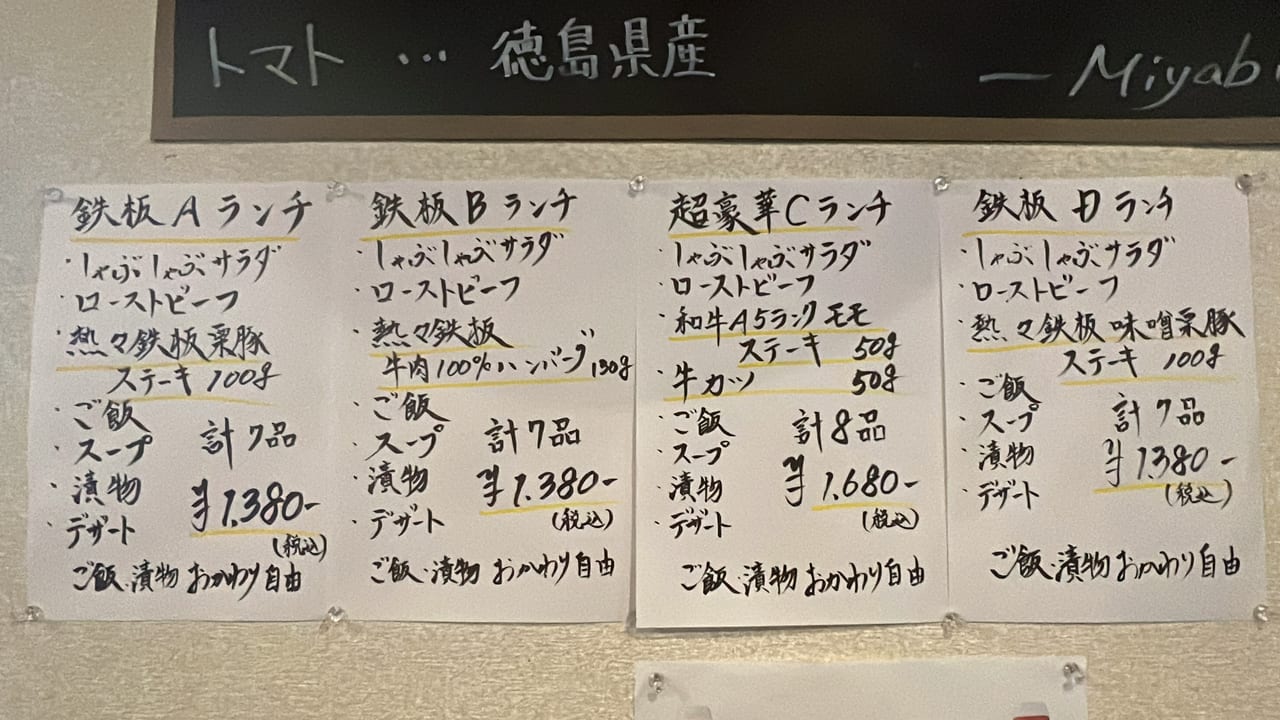 トマト … 徳島県産
— Miyab
鉄板Aランチ
・しゃぶしゃぶサラダ
・ローストビーフ
・熱々鉄板栗豚
ステーキ 100g
・ご飯
・スープ
計7品
・漬物
¥1.380-
・デザート
(税込)
ご飯・漬物 おかわり自由
鉄板Bランチ
・しゃぶしゃぶサラダ
・ローストビーフ
・熱々鉄板
牛肉100%ハンバーグ130g
・ご飯
・スープ
計7品
・漬物
¥1.380-
・デザート
(税込)
ご飯・漬物 おかわり自由
超豪華Cランチ
・しゃぶしゃぶサラダ
・ローストビーフ
・和牛A5ランクモモ
ステーキ 50g
・牛カツ 50g
・ご飯
計8品
・スープ
・漬物
¥1.680-
・デザート
(税込)
ご飯・漬物おかわり自由
鉄板Dランチ
・しゃぶしゃぶサラダ
・ローストビーフ
・熱々鉄板味噌栗豚
ステーキ 100g
・ご飯
・スープ
計7品
・漬物
¥1.380-
・デザート
(税込)
ご飯・漬物おかわり自由